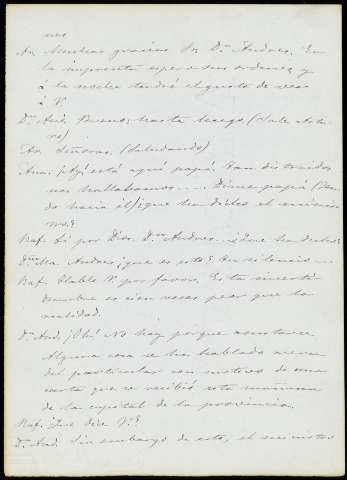 nos
Ar. Muchas gracias Sr. Dn. Andres. En
la imprenta espero sus ordenes, y
á la noche tendré el gusto de ver
á V.
Dn. And. Bueno; hasta luego (Sale
Ar. Señoras. (Saludando)
Ana. ¡Ay! está aquí papá. Tan distraidos
nos hallabamos.... Dime papá
hacia él) ¿que ha dicho el
Raf. Sí por Dios Dn. Andres.. ¿Que ha dicho?
Dña. Ma. Andres ¿que es esto? Su silencio...
Raf. Hable V. por favor. Esta incerti-
dumbre es cien veces peor que la
realidad.
Dn. And. ¡Oh! No hay porque asustarse.
Alguna cosa se ha hablado acerca
del particular con motivo de una
carta que se recibió esta mañana
de la capital de la provincia.
Raf. ¿Que dice V.?
Dn. And. Sin embargo de esto, el